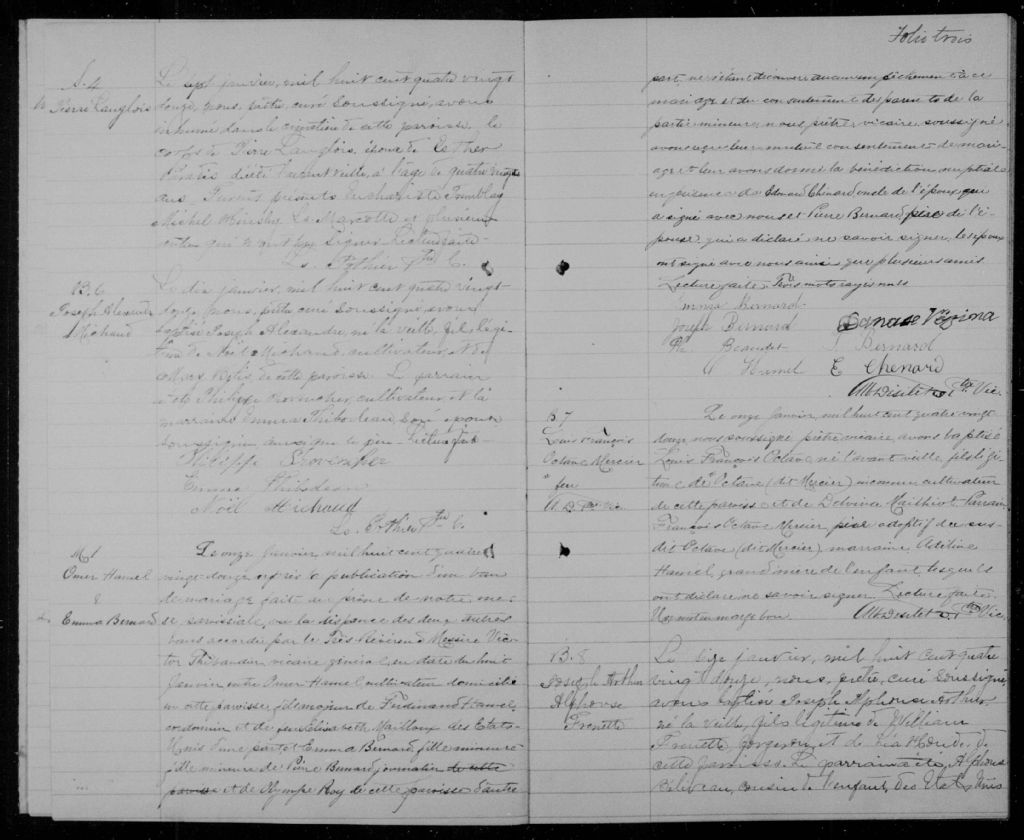 S. 4
Pierre Langlois
Le sept janvier, mil huit cent quatre vingt
douze, nous, prêtre, curé soussigné, avons
inhumé dans le cimetière de cette paroisse, le
corps de Pierre Langlois, époux de Esther
décédé l'avant veille, à l'âge de quatre vingts
ans. Furent présents Tremblay
Michel La Marcotte et plusieurs
autres qui n'ont pas signer. Lecture faite
Ptre C.
B. 6
Joseph Alexandre
Michaud
Le dix janvier, mil huit cent quatre vingt-
douze, nous, prêtre curé soussigné, avons
baptisé Joseph Alexandre, né la veille, fils légi-
time de Noël Michaud, cultivateur, et de
de cette paroisse. Le parrain
a été Philippe cultivateur, et la
marraine Emma Thibodeau
soussignés avec le père. Lecture faite
Philippe Provencher
Emma Thibodeau
Noël Michaud
Ptre C.
M. 1
Omer Hamel
&
Emma Bernard
Le onze janvier, mil huit cent quatre
vingt-douze, après la publication d'un ban
de mariage faite au prône de notre mes-
se paroissiale, vu la dispense des deux autres
bans accordée par le Très Révérend Messire Vic-
tor Thibaudier, vicaire général, en date du huit
janvier entre Omer Hamel, cultivateur domicilié
en cette paroisse, fils majeur de Ferdinand Hamel,
cordonnier et de feu Elisabeth Mailloux des Etats-
Unis d'une part et Emma Bernard, fille mineure
fille mineure de Pierre Bernard journalier de cette
paroisse et de Olympe Roy de cette paroisse d'autre
Folio trois
part, ne s'étant découvert aucun empêchement à ce
mariage et du consentement des parents de la
partie mineure, nous, prêtre, vicaire, soussigné
avons reçu leur mutuel consentement de mari-
age et leur avons donné la bénédiction nuptiale
en présence de Edouard Chenard oncle de l'époux qui
a signé avec nous et Pierre Bernard père de l'é-
pouse, qui a déclaré ne savoir signer, les époux
ont signé avec nous ainsi que plusieurs amis
Lecture faite. Trois mots rayés nuls
Emma Bernard
Joseph Bernard Danase Vézina
Beaudet J. Bernard
Hamel E Chenard
Ptre Vic.
B 7
Louis François
Octave Mercier
Ptre Vic
Le onze Janvier, mil huit cent quatre vingt
douze nous soussigné prêtre vicaire, avons baptisé
Louis François Octave, né l'avant veille, fils légi-
time de Octave (dit Mercier) cultivateur
de cette paroisse et de Delvina Parrain
François Octave Mercier, père adoptif du sus-
dit Octave (dit Mercier), marraine, Adeline
Hamel, grand'mère de l'enfant, lesquels
ont déclaré ne savoir signer. Lecture faite.
Un mot en marge bon. Ptre Vic.
B. 8
Joseph Arthur
Alphonse
Frenette
Le janvier, mil huit cent quatre
vingt douze, nous, prêtre, curé soussigné,
avons baptisé Joseph Alphonse Arthur
né la veille, fils légitime de William
Frenette, forgeron, et de Léa de
cette paroisse. Le parrain a été, Alphonse
Béliveau, cousin de l'enfant, des Etats-Unis